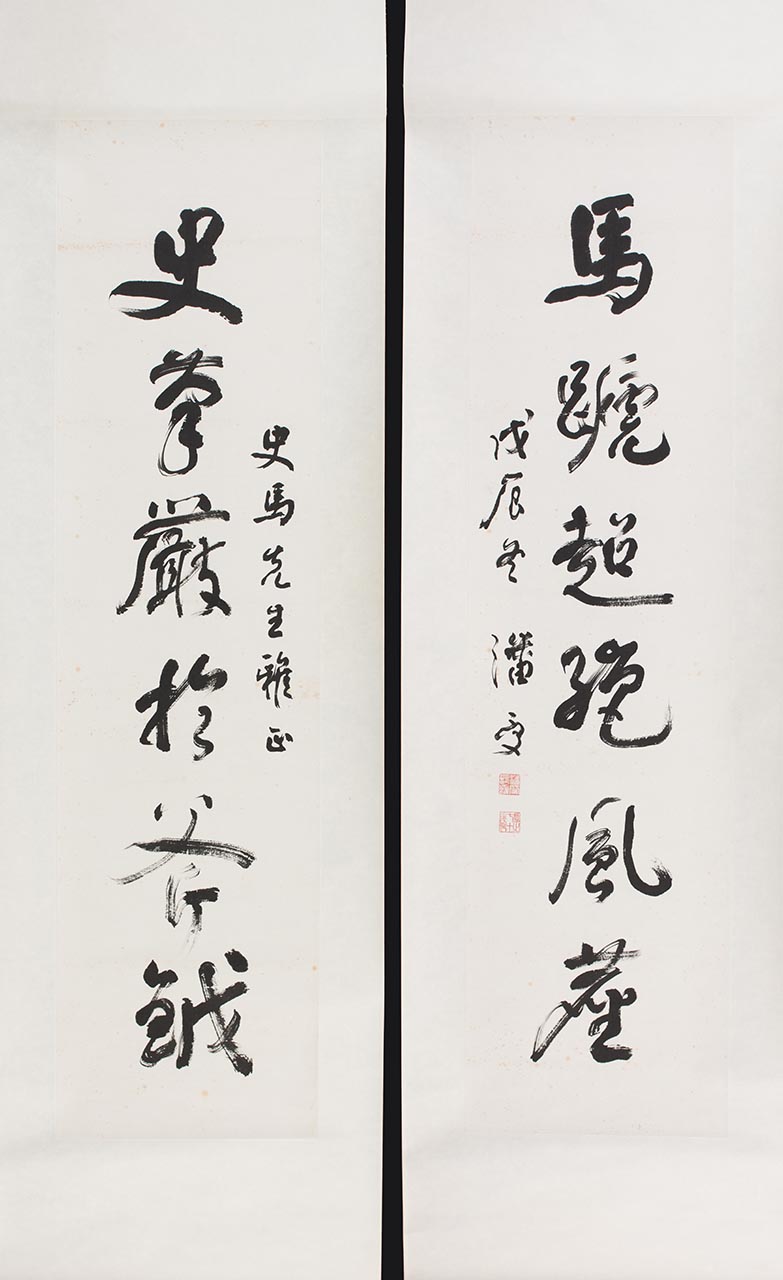 馬蹏超絶風塵
戊辰冬 潘受
史馬先生雅正
史筆嚴於斧鉞